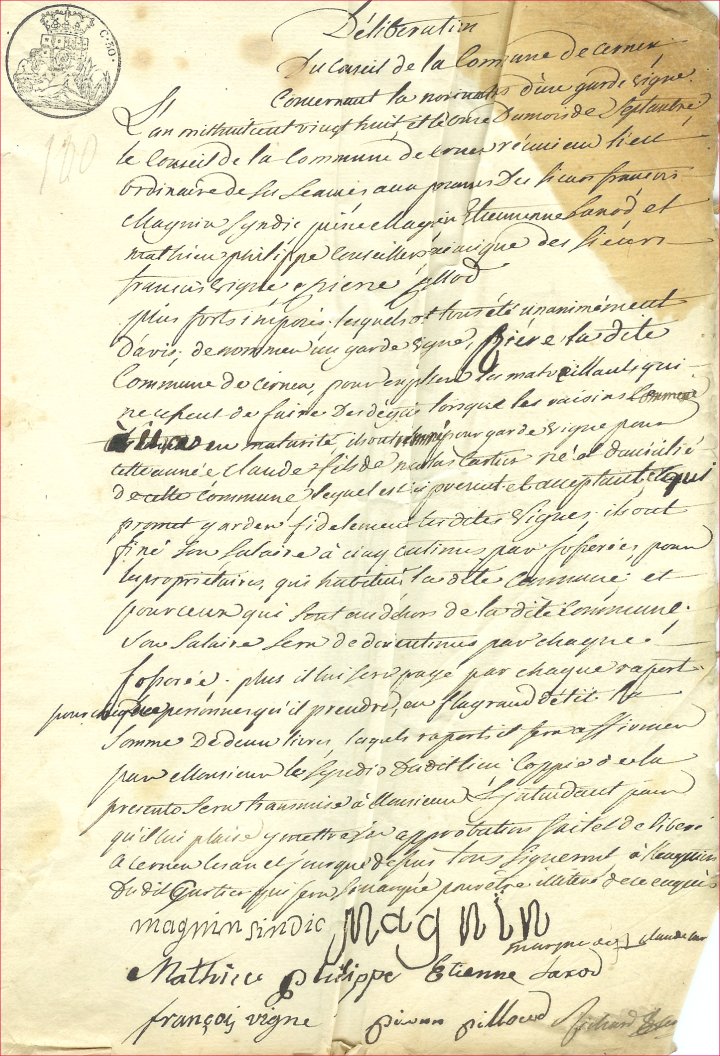 C. 30.
Déliberation
Du Conseil de la Commune de cernex
Concernant la d'un garde vigne
L'an mil huit cent vingt huit et le onze du mois de Septembre
le Conseil de la Commune de cernex réuni au lieu
ordinaire de ses seances aux des sieurs francois
Magnin syndic Magnin Etiennenne Lavod et
mathieu philippe Conseillers des sieurs
francois vigne Pierre pillod
plus forts imposés lesquels ont tous été unanimement
D'avis de nommer un garde vigne, la dite
Commune de cernex, pour les malveillants qui
ne de faire des degats lorsque les raisins Commence
en maturité ils ont nommé pour garde vigne pour
cette année Claude fils de Cartier né & domicilié
de cette Commune lequel est icy present et acceptant et qui
promet garder fidelement les dites vignes ils ont
fixé son salaire à cinq centimes par fosserées pour
les proprietaires, qui habitent la dite Commune et
pour ceux qui sont au dehors de la dite Commune
son salaire sera de dix centimes par chaque
fosserée. plus il lui sera payé par chaque raport
pour chaque personnes qu'il prendra, en flagrand délit la
somme De deux livres, lequels raports il fera affirmer
par Monsieur le Syndic Dudit lieu Coppie de la
presente sera transmise à Monsieur L'intandant pour
qu'il lui plaise y mettre son approbation fait et deliberé
A cernex les an et jour que dessus tous signerent à
Dudit Cartier qui fera sa marque pour être illiteré de ce enquis
magnin sindic Magnin
marque de Claude
Mathieu philippe Etienne Lavod
françois vigne pierre pilloud